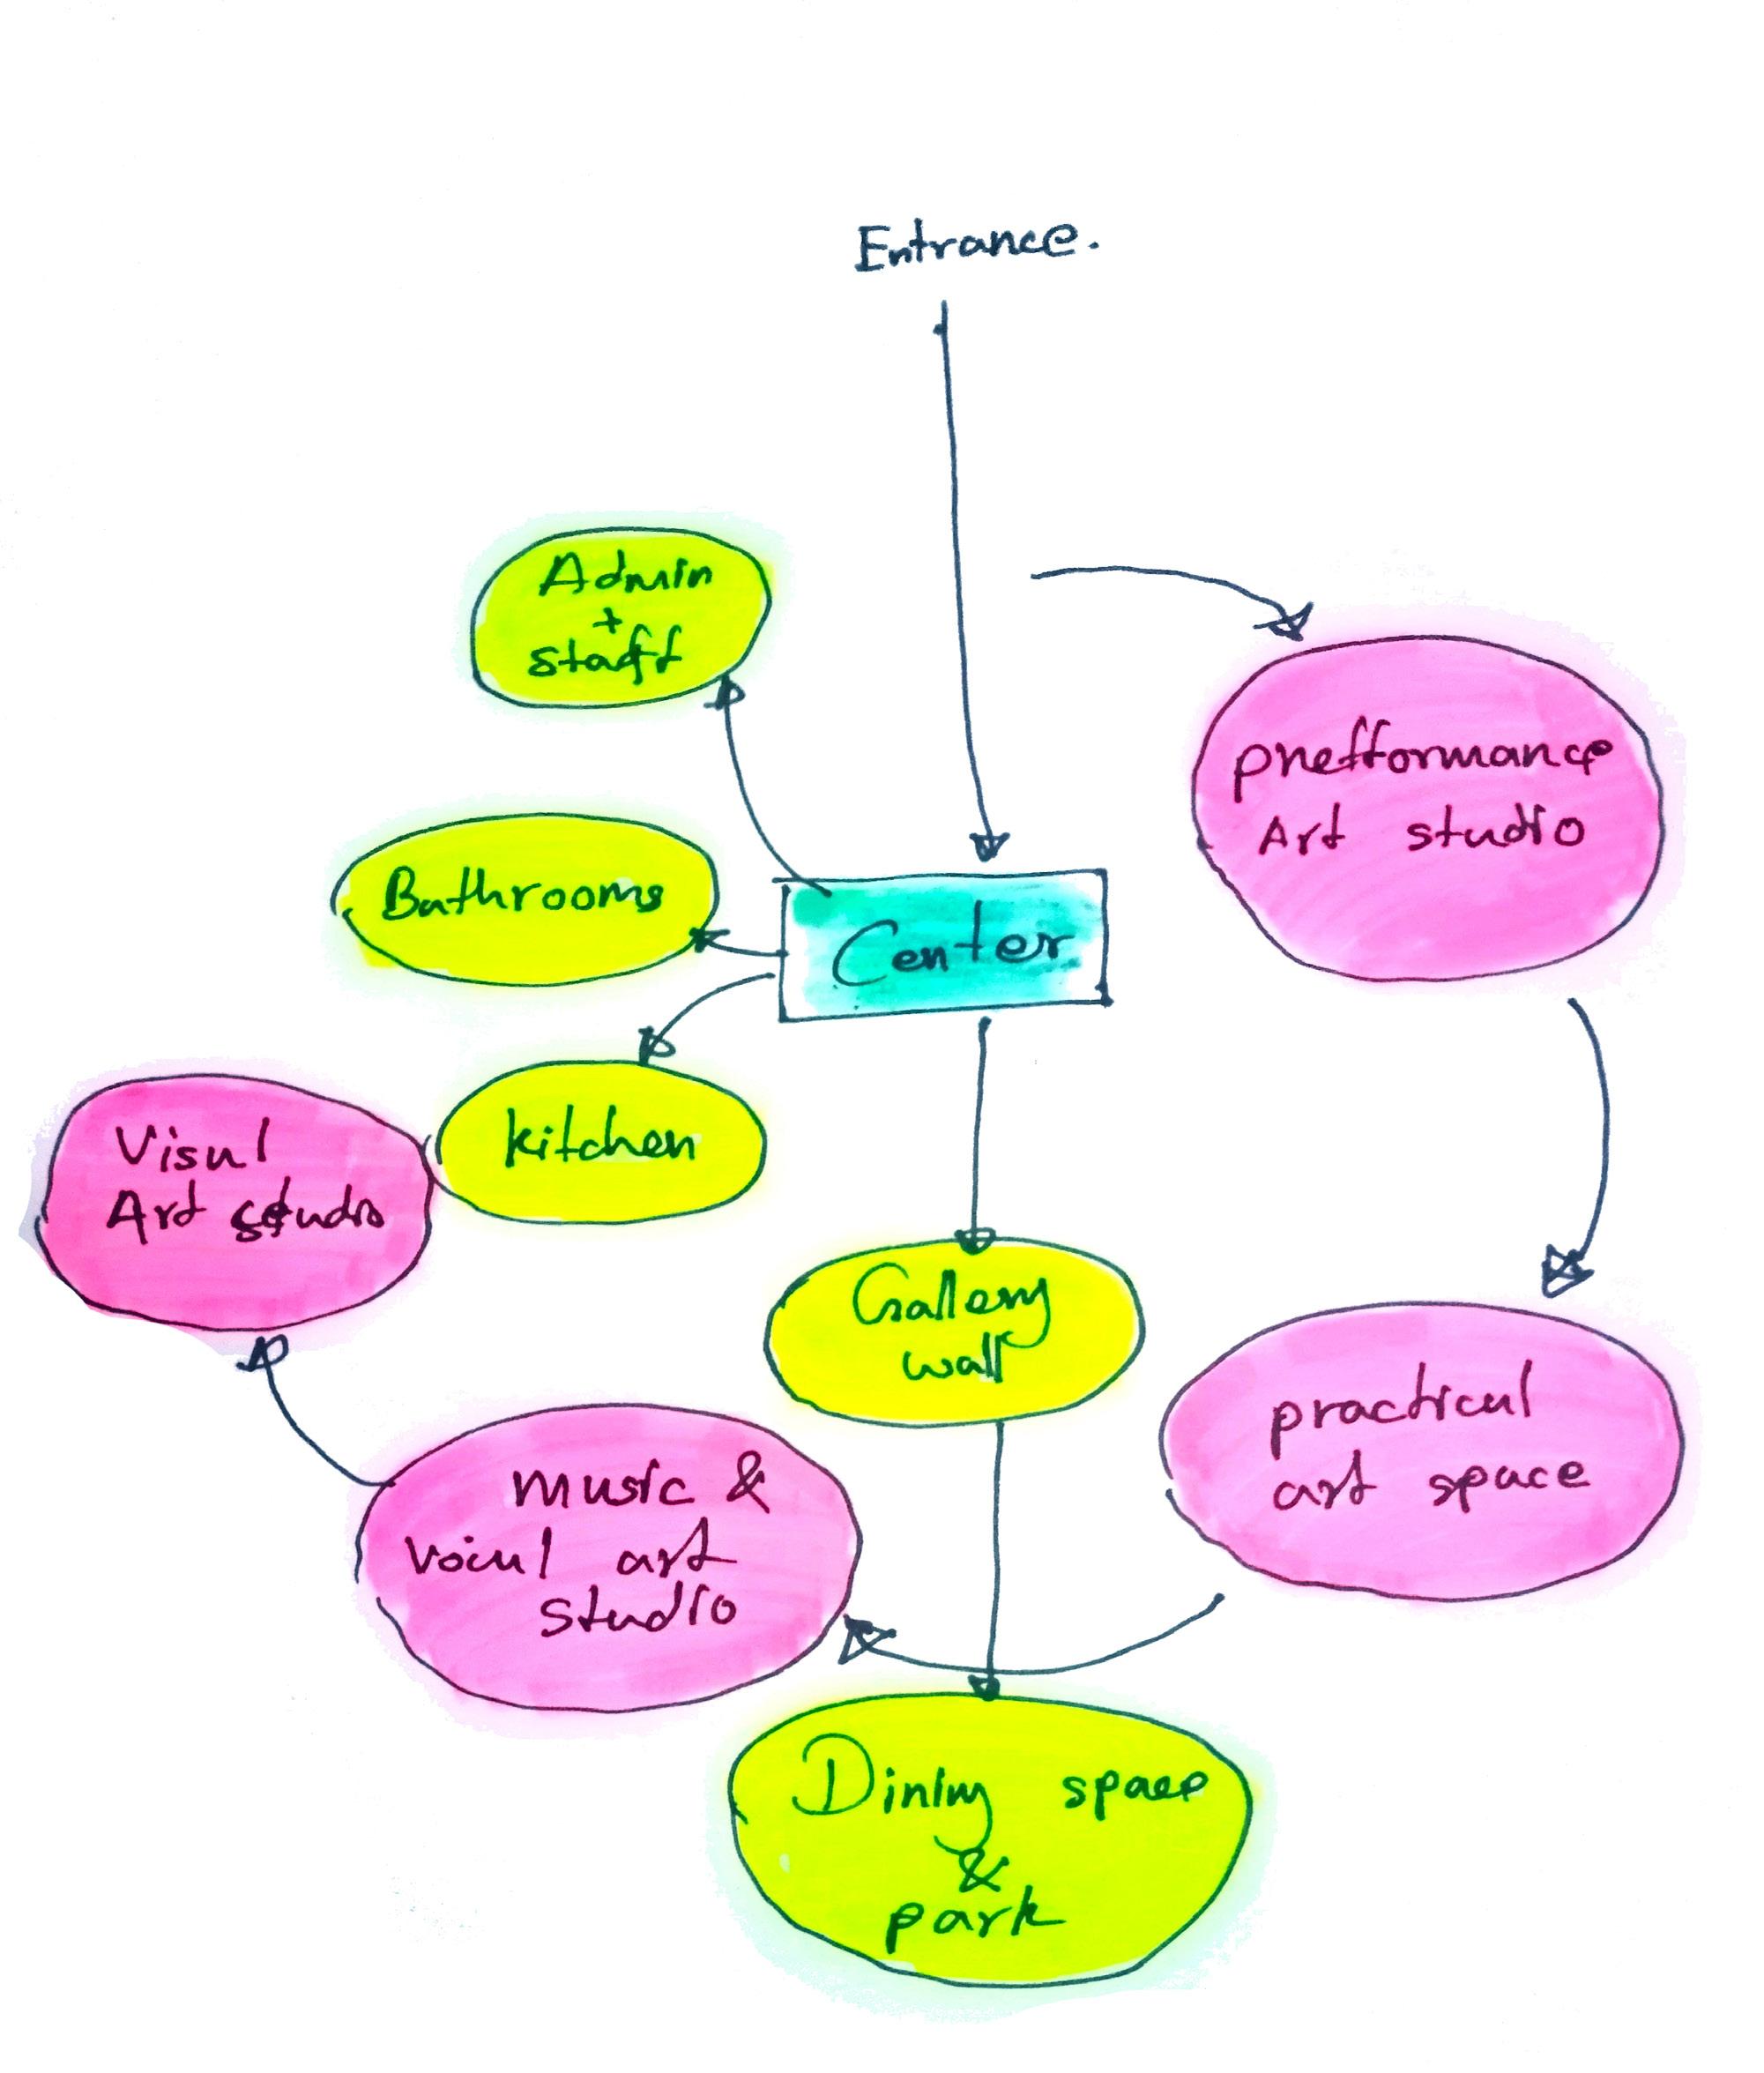 Entrance.
Admin
+
staff
prefformance
Art studio
Bathrooms
Center
kitchen
Visul
Art studio
Gallery
wall
practical
art space
music &
voical art
studio
Dining space
&
park